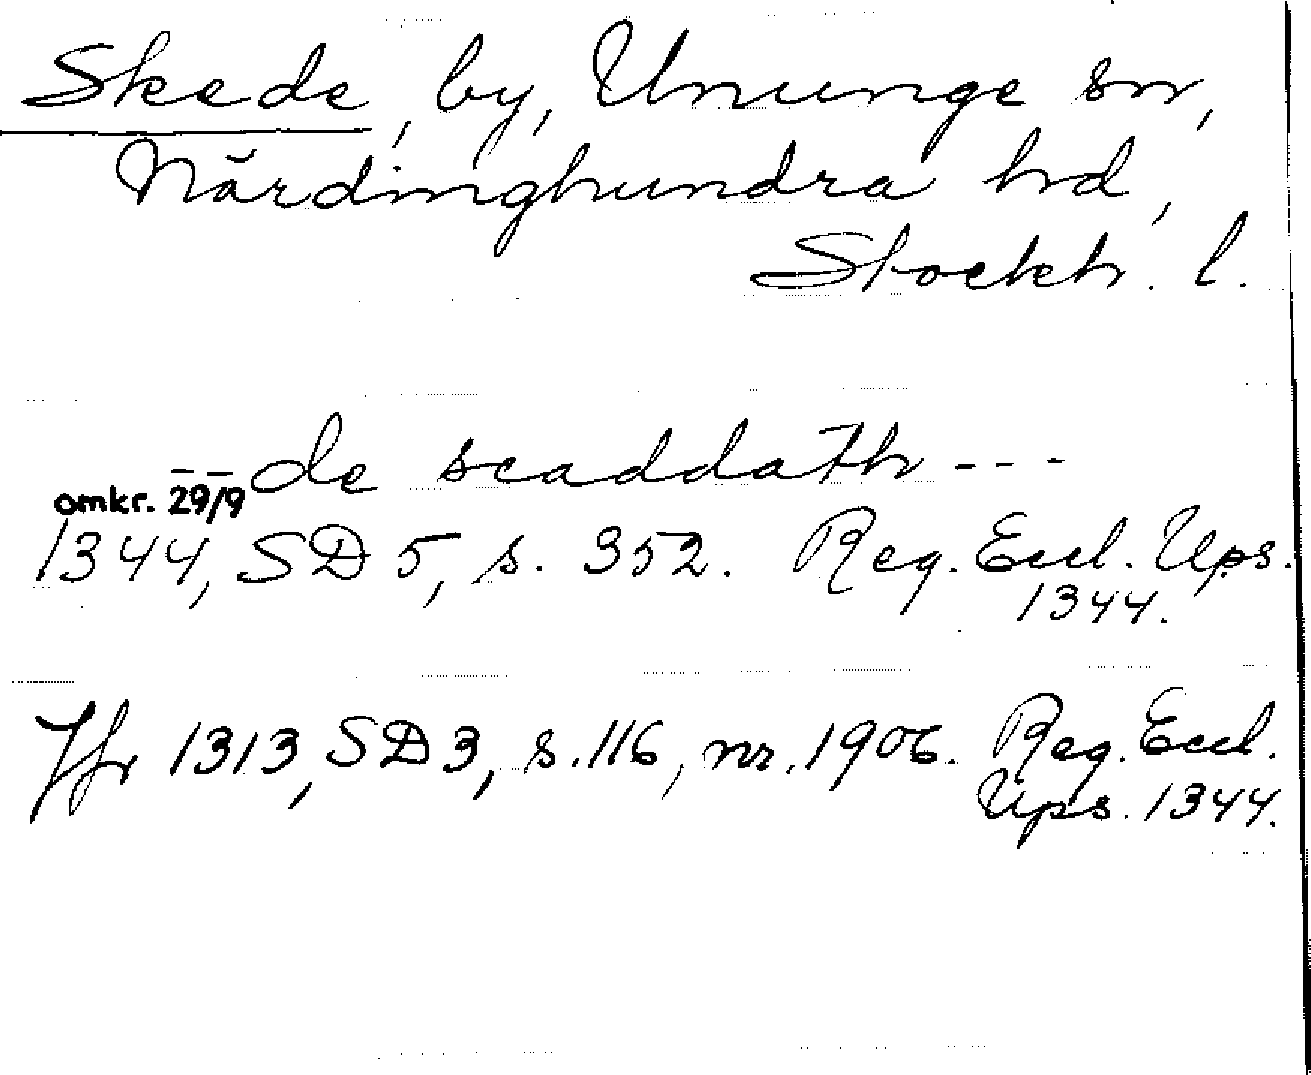 Skede, by, Ununge sn,
Närdinghundra hd,
Stockh. l.
-- de scaddath ---
omkr. 29/9
1344, SD 5, s. 352. Reg. Eccl. Ups.
1344.
Jfr 1313, SD 3, s. 116, nr. 1906. Reg. Eccl.
Ups. 1344.